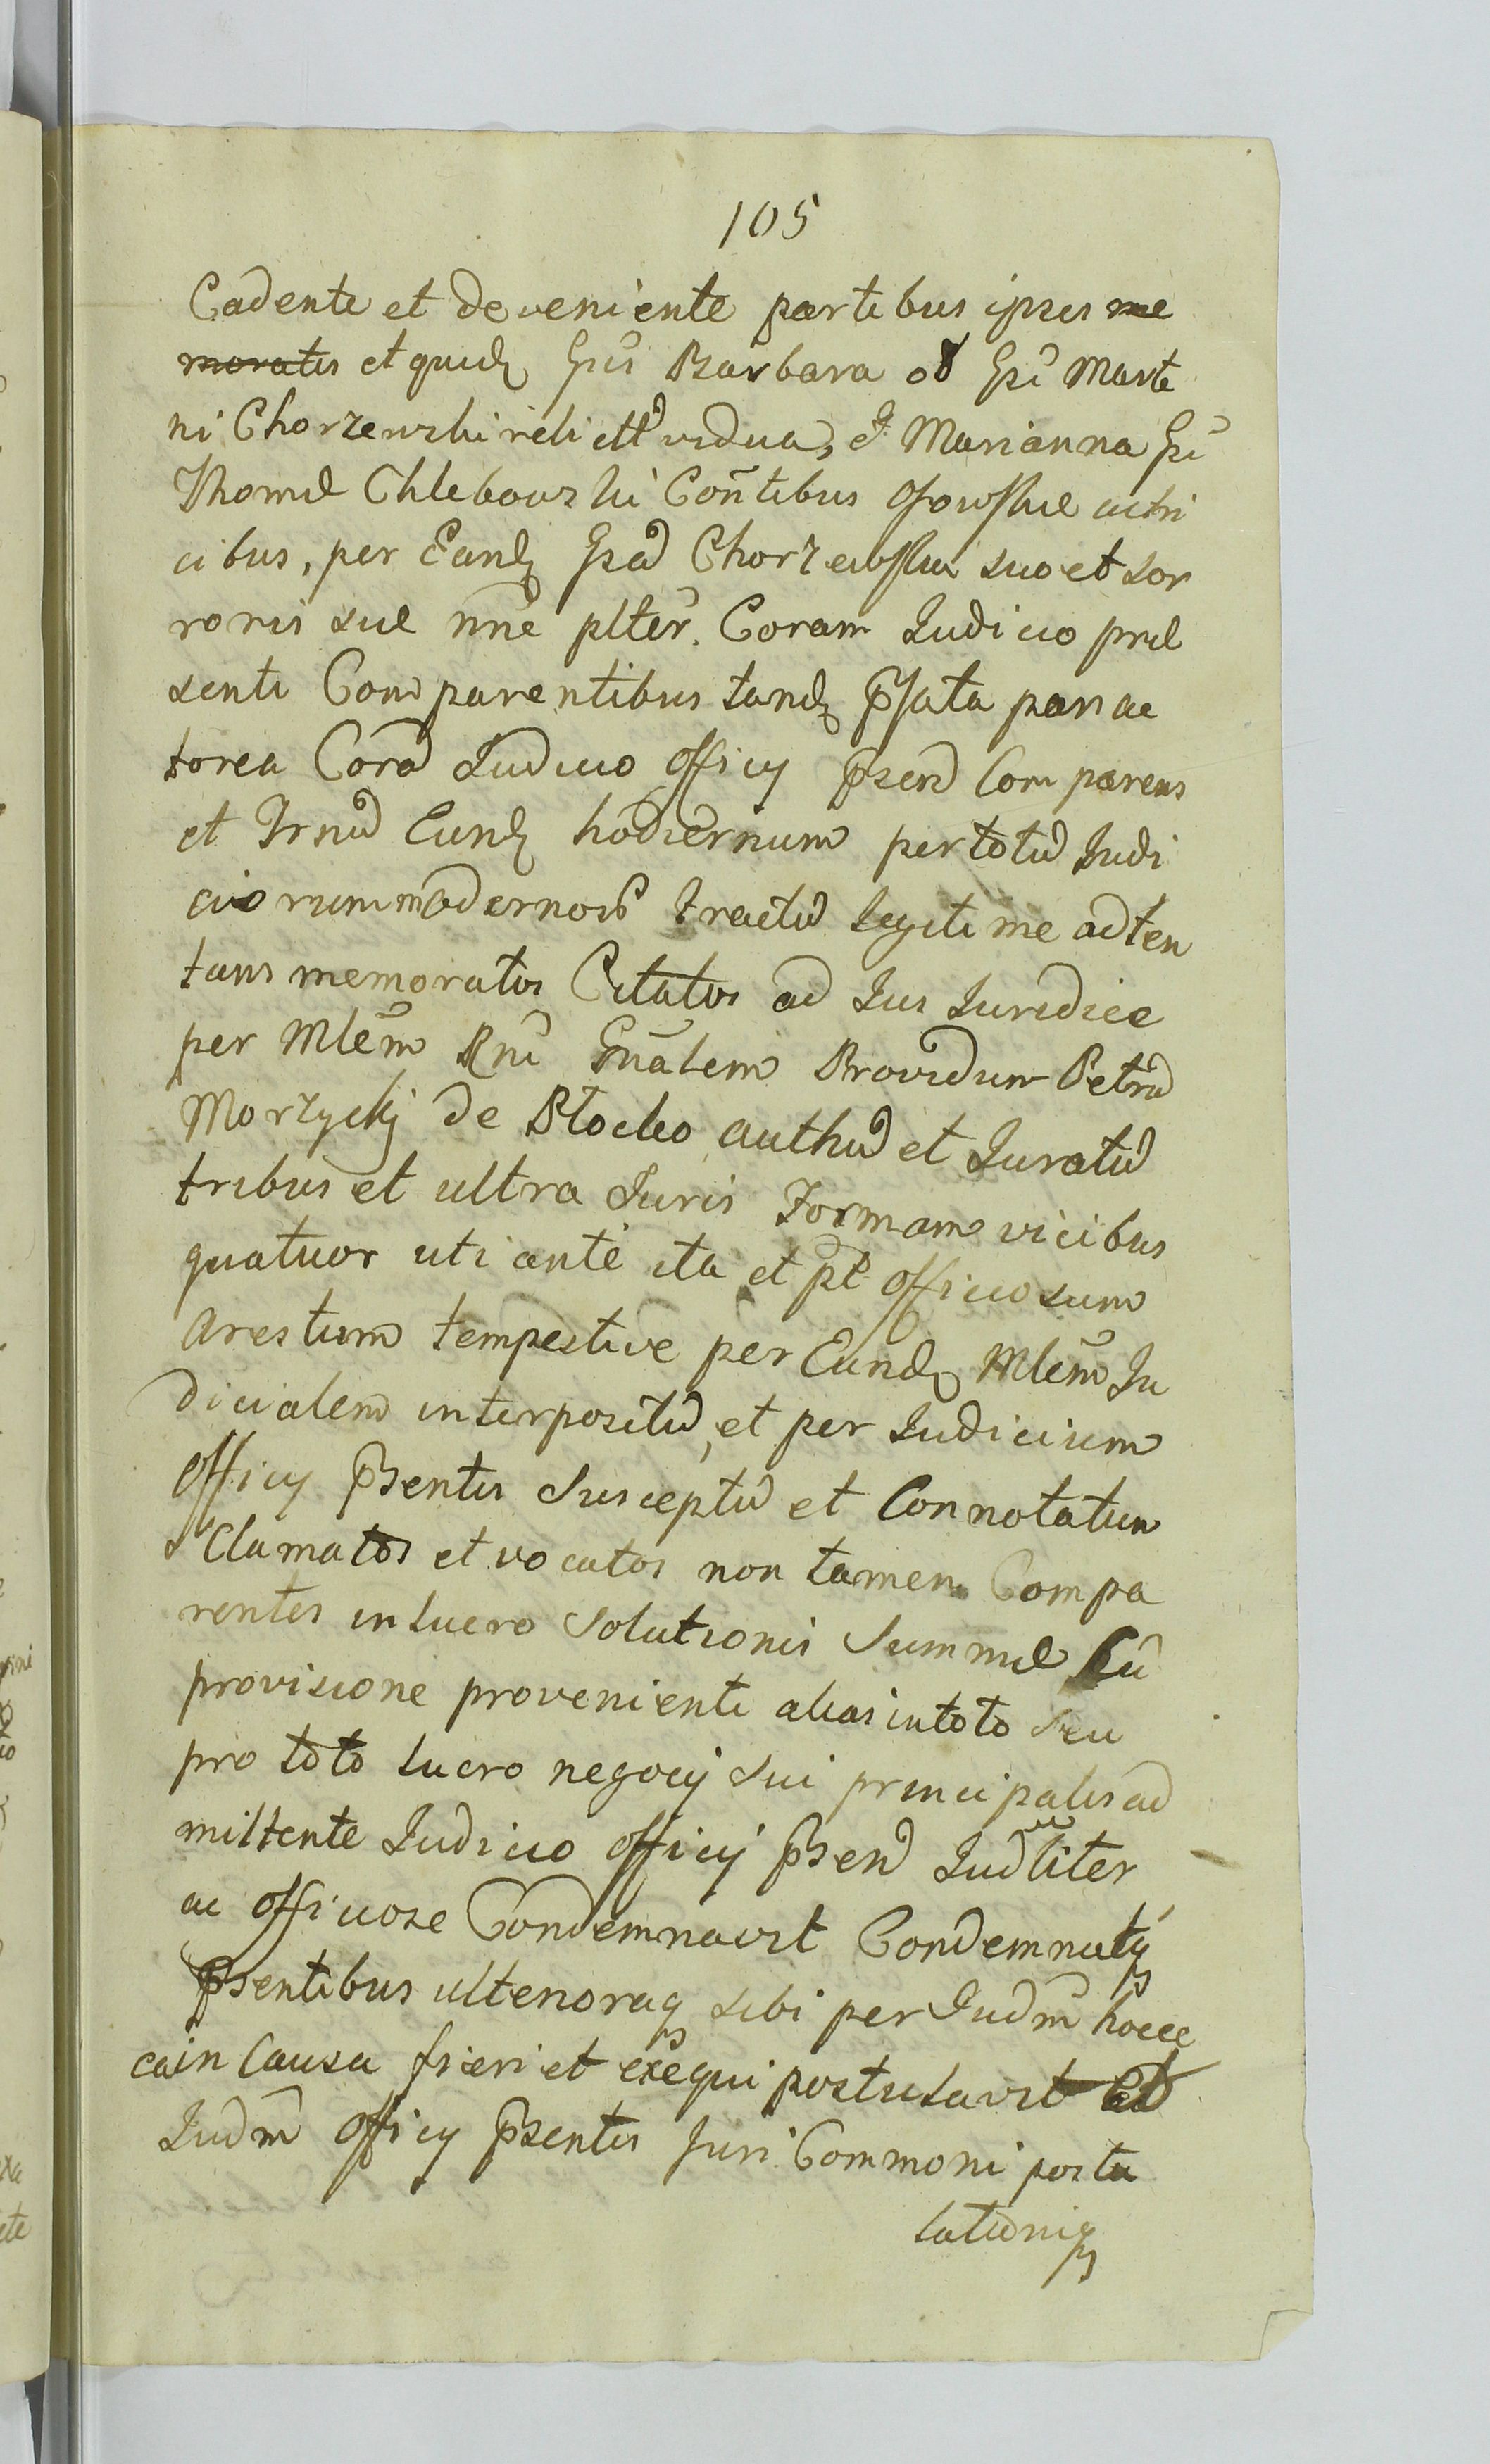 105
Cadente et deveniente partibus ipsis me
moratis et quidē Gsis Barbara oō Gsi Marti
ni Chorzewski relictā vidua, et Marianna Gsi
Thomæ Chlebowski Coñtibus Osowskie actri
cibus, per Eandē Gsā Chorzewska suo et sor
roris suæ nñe plter. Coram Iudicio præ
senti Comparentibus tandē pfata pars ac
torea Corā Iudicio Officij psenī Comparens
et Trnū Eundē hodiernum per totū Iudi
ciorum modernorū tractū legitime adten
tans memoratos Citatos ad Ius Iuridice
per Mlem Rni Gñalem Providum Petrū
Morzyckj de Płocko authū et Iuratū
tribus et ultra Iuris Formam vicibus
quatuor uti ante ita et pt officiosum
Arestum tempestive per Eundē Mlem Iu
dicialem interpositū, et per Iudicium
Officij psentis Susceptū et Connotatum
Clamatos et vocatos non tamen Compa
rentes in lucro Solutionis Summæ Cū
provisione provenienti alias in toto Seu
pro toto lucro negocij Sui principalis ad
mittente Iudicio officij psenī Iudliter
ac officiose Condemnavit Condemnatisq
psentibus ulterioraq sibi per Iudm hocce
ca in Causa fieri et exequi postulavit Et
Iudm Officij psentis Iuri Commoni postu
lationiq